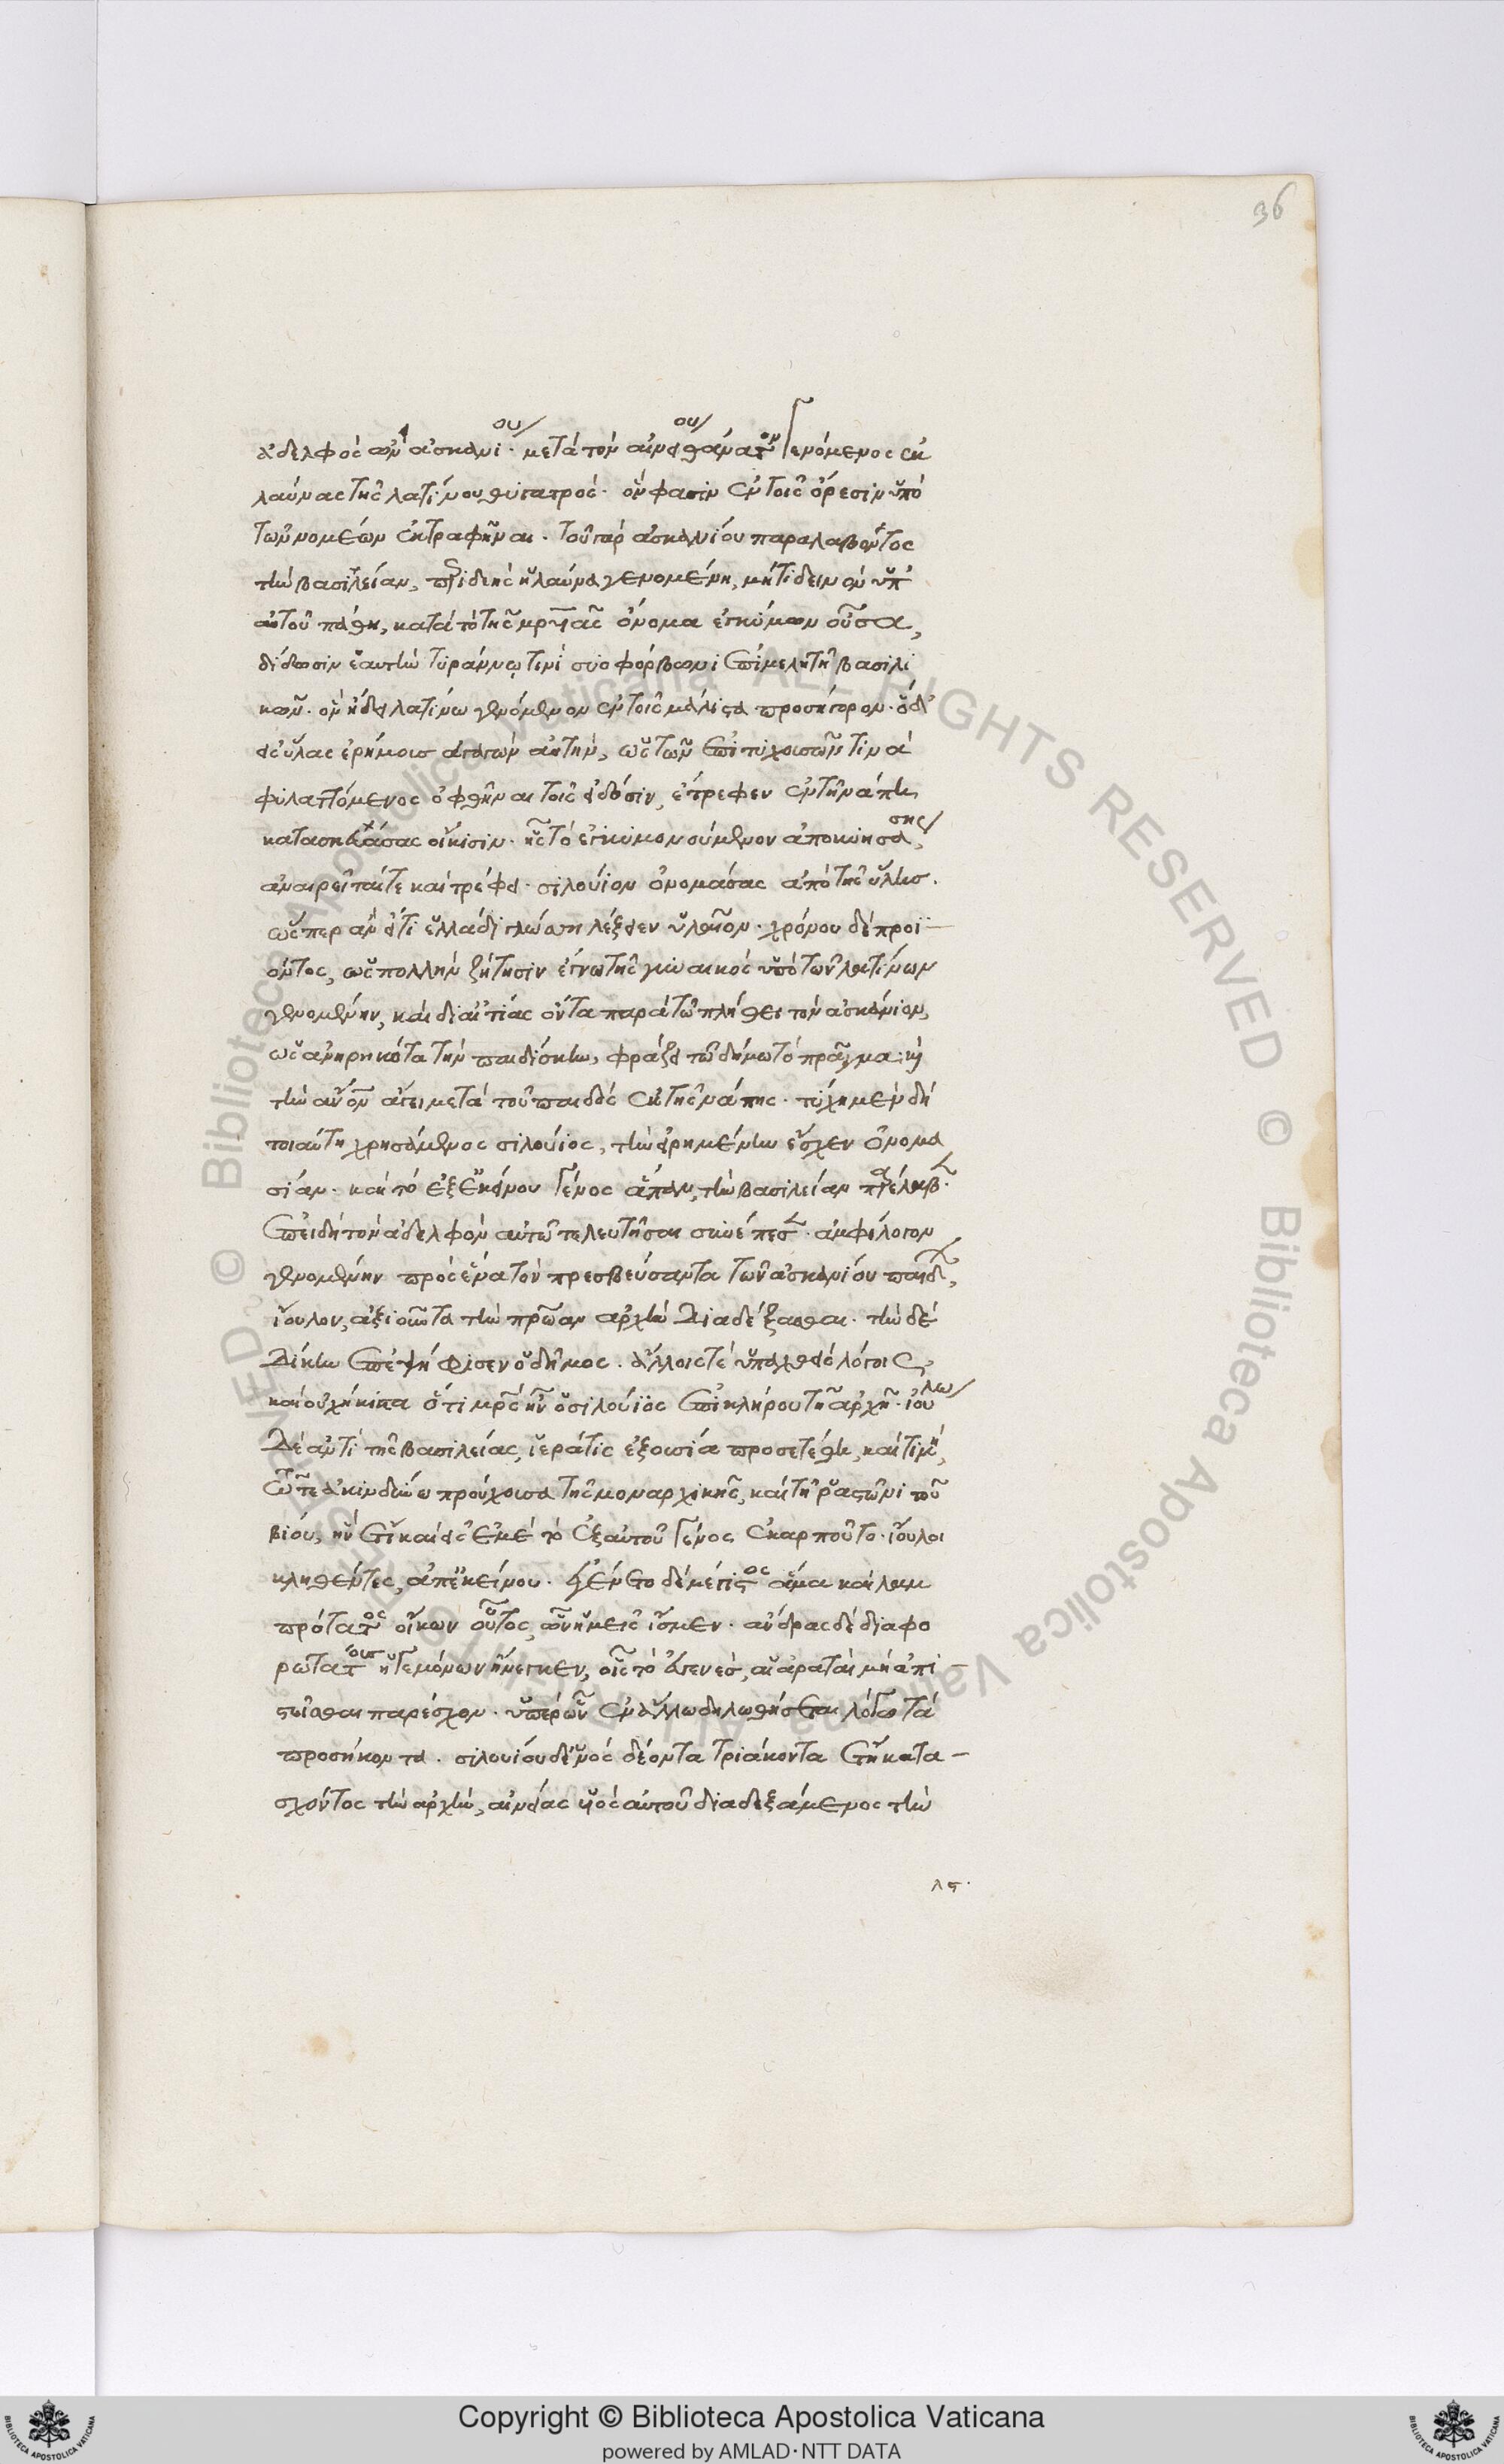 36
ἀδελφὸς ὢν ἀσκανίου· μετὰ τὸν αἰνείου θάνατον γενόμενος ἐκ
λαύνας τῆς λατίνου θυγατρός· ὅν φασιν ἐν τοῖς ὄρεσιν ὑπὸ
τῶν νομέων ἐκτραφῆναι· τοῦ γὰρ ἀσκανίου παραλαβόντος
τὴν βασιλείαν, περιδεὴς ἡ λαύνα γενομένη, μή τι δεινὸν ὑπ'
αὐτοῦ πάθη, κατὰ τὸ τῆς μρυιᾶς ὄνομα ἐγκύμων οὖσα,
δίδωσιν ἑαυτὴν τυράννῳ τινὶ συοφόρβωνι ἐπιμελητῆ βασιλι
κῶν· ὃν ἤδει λατίνω γενόμενον ἐν τοῖς μάλιστα προσήγορον· ὁ δ'
εἰς ὕλας ἐρήμοις ἀγαγὼν αὐτὴν, ὡς τῶν ἐπιτυχουσῶν τινὰ
φυλαττόμενος ὀφθῆναι τοῖς εἰδόσιν, ἔτρεφεν ἐν τῆ νάπη
κατασκευάσας οἴκισιν· ἧς τὸ ἐγκυμονούμενον ἀποκυησάσης,
ἀναιρεῖται τε καὶ τρέφει· σιλούιον ὀνομάσας ἀπὸ τῆς ὕλης.
ὥσπερ ἂν εἴ τι ἑλλάδι γλώσση λέξειεν ὑλαῖον· χρόνου δὲ προϊ
όντος, ὡς πολλὴν ζήτησιν ἔγνω τῆς γυναικὸς ὑπὸ τῶν λατίνων
γενομένην, καὶ δι αἰτίας ὄντα παρὰ τῶ πλήθει τὸν ἀσκάνιον,
ὡς ἀνηρηκότα τὴν παιδίσκην, φράζει τῶ δήμω τὸ πρᾶγμα· καὶ
τὴν ἄνον ἄγει μετὰ τοῦ παιδὸς ἐκ τῆς νάπης· τύχη μὲν δὴ
τοιαύτη χρησάμενος σιλούιος, τὴν εἰρημένην ἔσχεν ὀνομα
σίαν· καὶ τὸ ἐξ ἐκείνου γένος ἅπαν, τὴν βασιλείαν παρέλαβεν·
ἐπειδὴ τὸν ἀδελφὸν αὐτῶ τελευτῆσαι συνέπεσεν· ἀμφίλογον
γενομένην πρὸς ἕνα τὸν πρεσβεύσαντα τῶν ἀσκανίου παίδων,
ἴουλον, ἀξιοῦντα τὴν πρώαν ἀρχὴν διαδέξασθαι· τὴν δὲ
δίκην ἐπεψήφισεν ὁ δῆμος· ἄλλοις τὲ ὑπαχθεὶς λόγοις,
καὶ οὐχήκιστα ὅτι μρὸς ἦν ὁ σιλούϊος ἐπικλήρου τῆς ἀρχῆς· ἰούλω
δὲ ἀντὶ τῆς βασιλείας, ἱερά τις ἐξουσία προσετέθη, καὶ τιμὴ,
τῶ τε ἀκινδύνω προύχουσα τῆς μοναρχικῆς, καὶ τῆ ῥαστώνη τοῦ
βίου, ἣν ἔτι καὶ εἰς ἐμὲ τὸ ἐξ αὐτοῦ γένος ἐκαρποῦτο· ἴουλοι
κληθέντες, ἀπ' ἐκείνου· ἐγένετο δὲ μέγιστος ἅμα καὶ λαμ
πρότατος οἴκων οὗτος, ὧν ἡμεῖς ἴσμεν· ἄνδρας δὲ διαφο
ρωτάτους ἡγεμόνων ἤνεγκεν, οἷς τὸ εὐγενὲς, αἱ ἀραταὶ μὴ ἀπι
στεῖσθαι παρέσχον· ὑπὲρ ὧν ἐν ἄλλω δηλωθήσεται λόγω τὰ
προσήκοντα. σιλουίου δ' ἑνὸς δέοντα τριάκοντα ἔτη κατα
σχόντος τὴν ἀρχὴν, αἰνείας υἱὸς αὐτοῦ διαδεξάμενος τὴν
λς·
© Biblioteca Apostolica Vaticana ALL RIGHTS RESERVED © Biblioteca Apostolica Vaticana ALL RIGHTS RESERVED
Copyright © Biblioteca Apostolica Vaticana
powered by AMLAD·NTT DATA
BIBLIOTECA APOSTOLICA VATICANA
BIBLIOTECA APOSTOLICA VATICANA